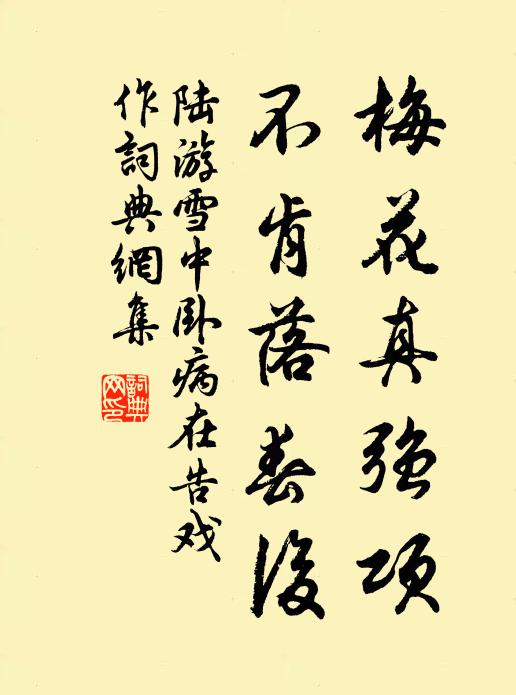 梅花真強項
不肯落春後
陆游雪中卧病在告戏
作詞典網集
詞典網印